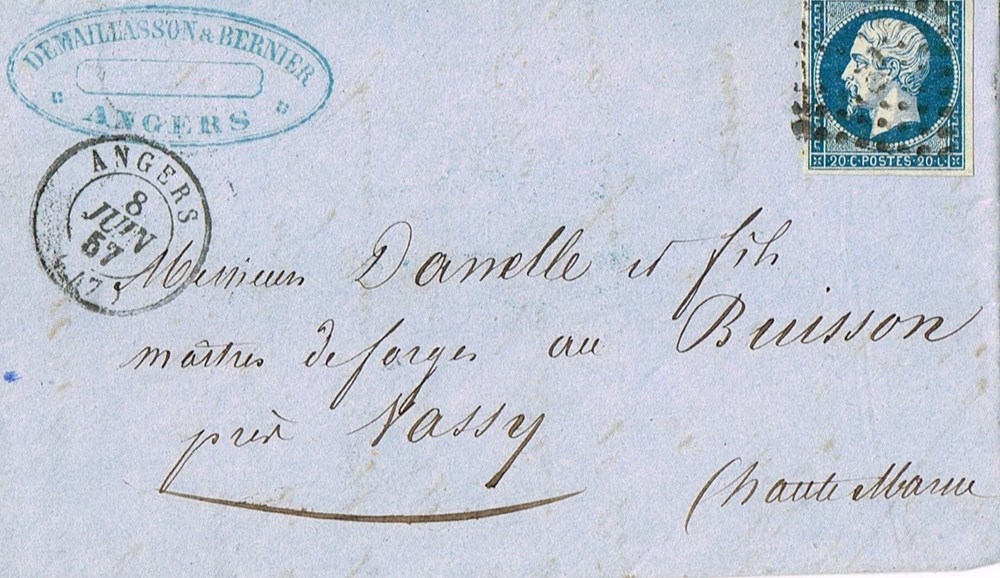 DEMAILLASSON & BERNIER
ANGERS
20 C. POSTES. 20 C.
ANGERS
8
JUIN
57
(47)
Messieurs Danelle et fils
maîtres de forges au Buisson
près Vassy
(haute Marne